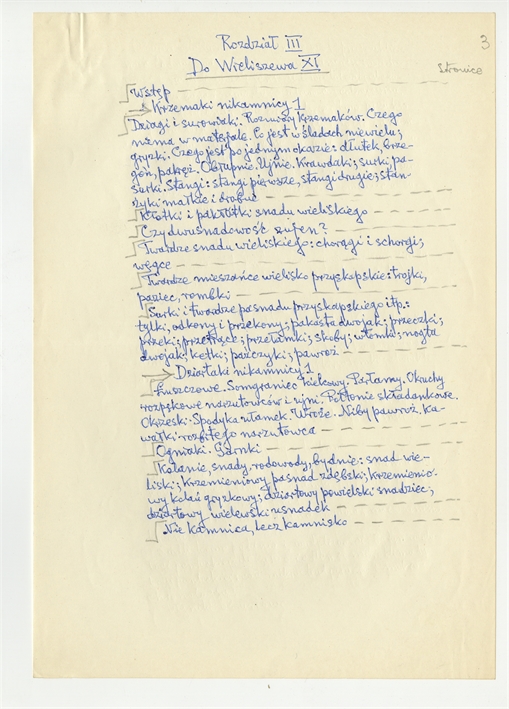 Rozdział III
3
Do Wieliszewa XI
Stronice
Wstęp
Krzemaki nikamnicy 1
Dziagi i surowiaki. Rozmiary krzemaków. Czego
niema w materjale. Co jest w śladach niewielu;
gryzki. Czego jest po jednym okazie: dłutek, brze-
goń, pakręż. Obrupnie. Ujnie. Krawdaki; surki, pa-
surki. Stangi: stangi pierwsze, stangi drugie; stan-
żyki małkie i drobne
Kłotki i pakłotki snadu wieliskiego
Czy dwusnadowość zużeń?
Twardze snadu wieliskiego: chorągi i schorgi;
węgce
Twardze mieszańce wielisko przyskapskie: trojki,
paciec, rombki
Surki i twardze pasnadu przyskapskiego itp.:
tylki, odkony i przekony; pakasta dwojak; przeczki;
przeki; przetrące; przewimki; skoby; włomki; nogta
dwojak, ketki; pażczyki; pawroż
Dziarłaki nikamnicy 1
Łuszczowe. Somgraniec kielcowy. Parłamy. Okruchy
rozpękowe narzutowców i ujni. Pełtonie składankowe.
Okrzeski. Spodyka ułamek. Wroże. Niby pawroż. Ka-
wałki rozbitego narzutowca
Ogniaki. Garnki
Kolanie, snady, rodowody, bydnie: snad wie-
liski; krzemieniowy pasnad zdębski; krzemienio-
wy kołań gryzkowy; dziarłowy powielski snadziec;
dziarłowy wielewski usnadek
Nie kamnica, lecz kamnisko